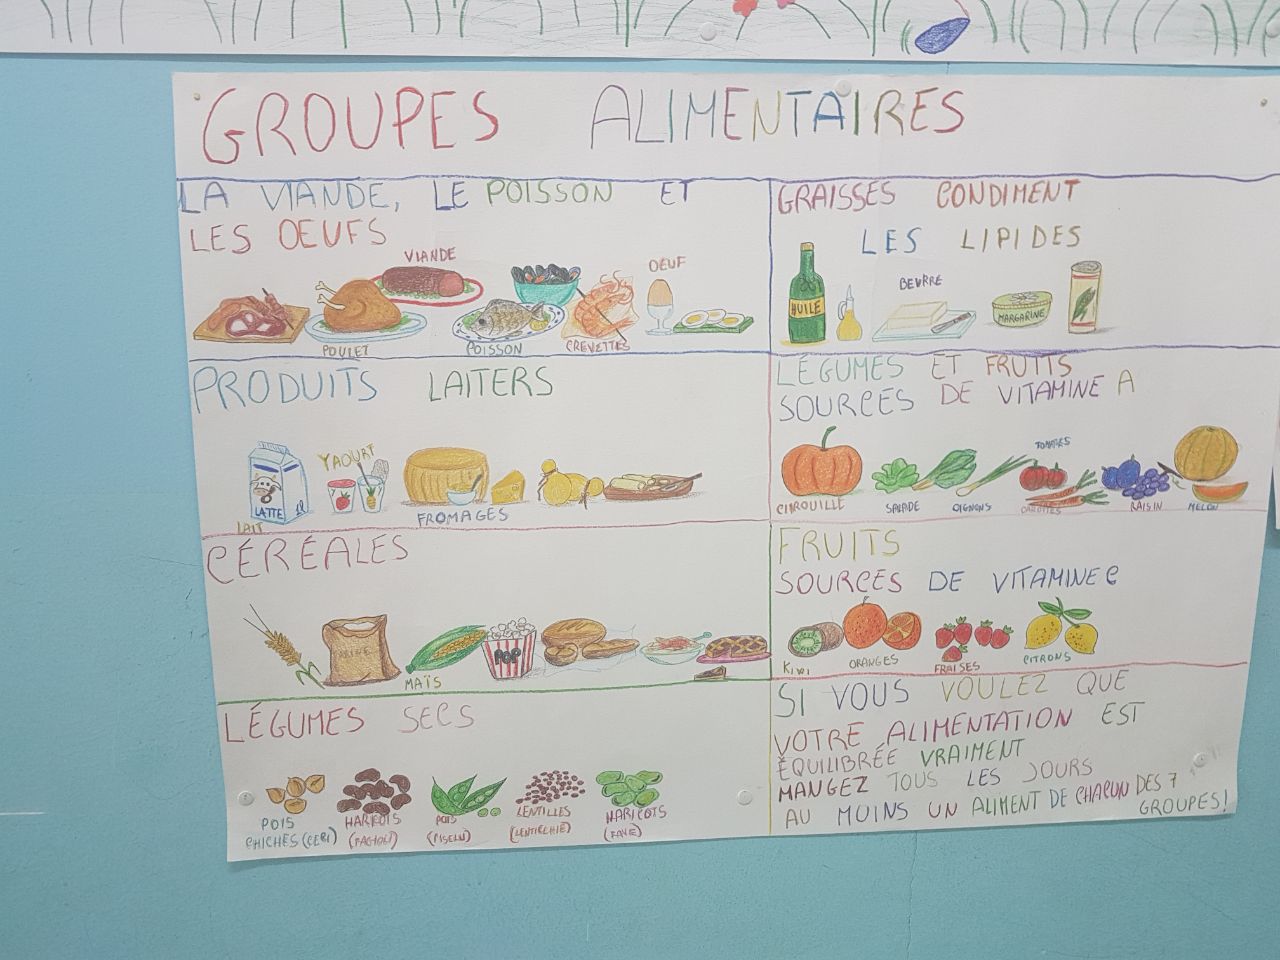 GROUPES ALIMENTAIRES
LA VIANDE, LE POISSON ET
LES OEUFS
VIANDE
OEUF
POULET
POISSON
CREVETTES
GRAISSES CONDIMENT
LES LIPIDES
HUILE
BEURRE
MARGARINE
PRODUITS LAITERS
YAOURT
LATTE
1l
LAIT
FROMAGES
LÉGUMES ET FRUITS
SOURCES DE VITAMINE A
TOMATES
CITROUILLE
SALADE
OIGNONS
CAROTTES
RAISIN
MELON
CÉRÉALES
FARINE
POP
MAÏS
FRUITS
SOURCES DE VITAMINE C
KIWI
ORANGES
FRAISES
CITRONS
LÉGUMES SECS
POIS
CHICHES (CECI)
HARICOTS
(FAGIOLI)
POIS
(PISELLI)
LENTILLES
(LENTICCHIE)
HARICOTS
(FAVE)
SI VOUS VOULEZ QUE
VOTRE ALIMENTATION EST
ÉQUILIBRÉE VRAIMENT
MANGEZ TOUS LES JOURS
AU MOINS UN ALIMENT DE CHACUN DES 7
GROUPES!